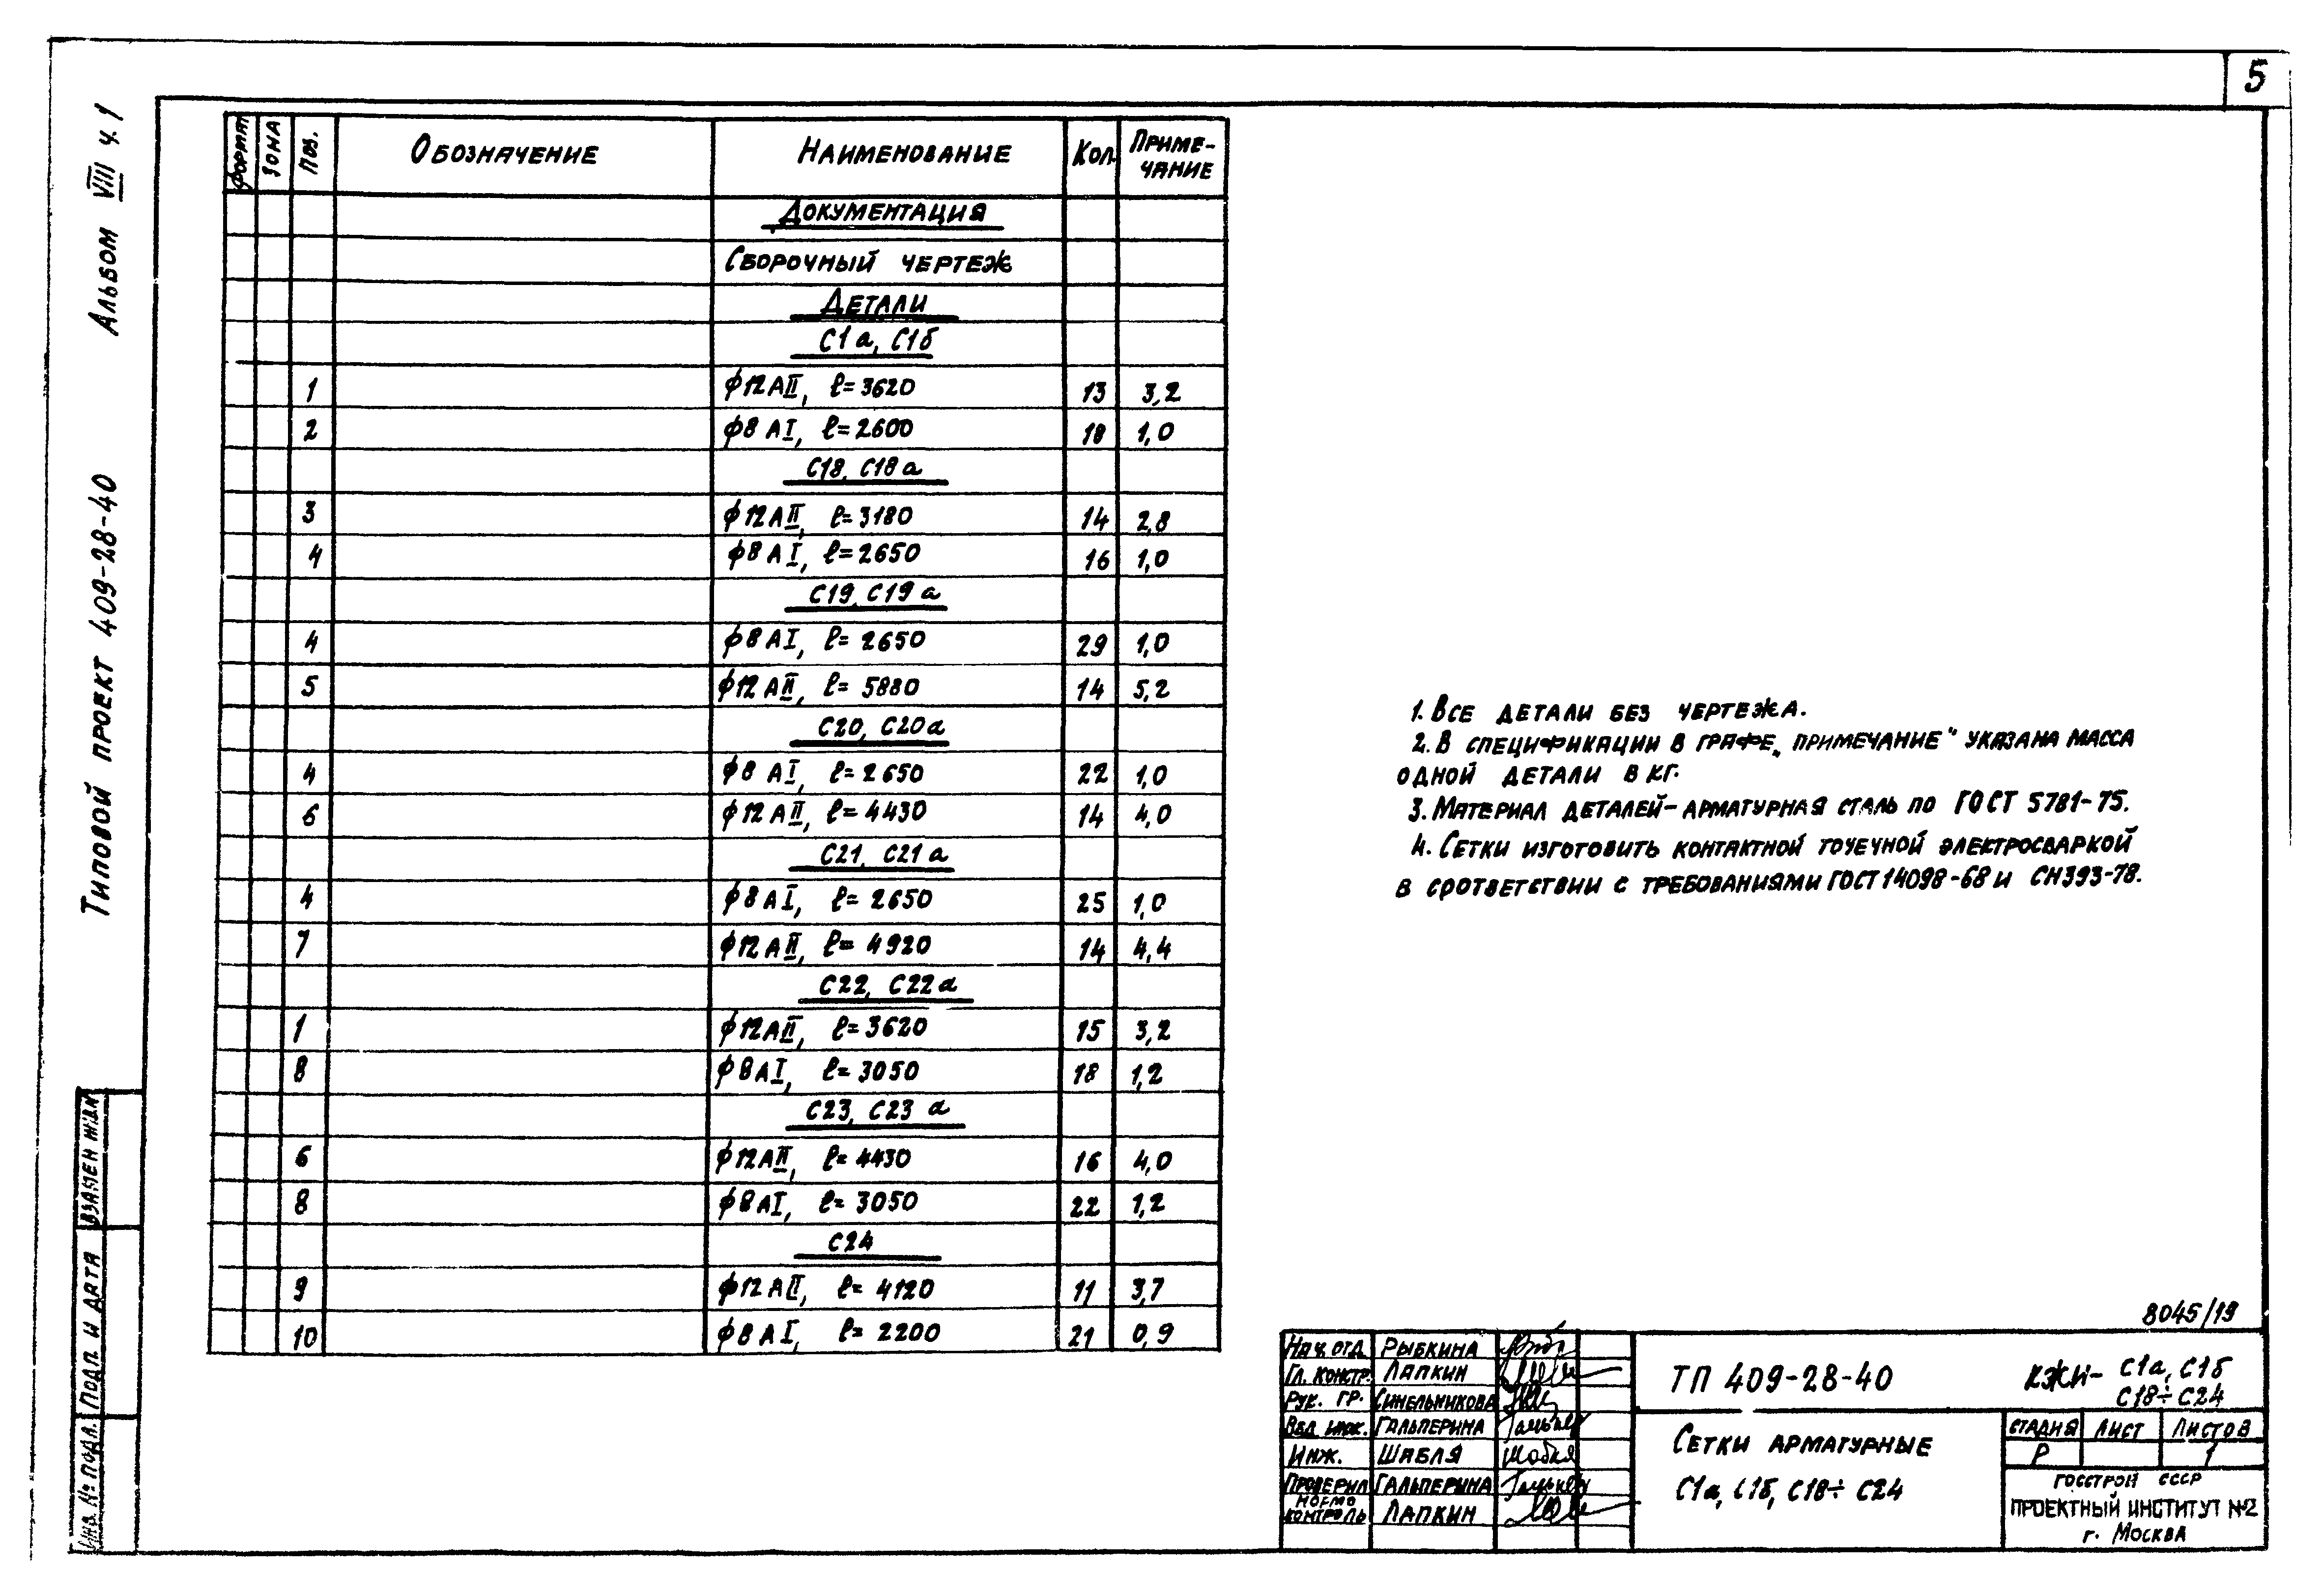 5
Альбом VIII ч.1
Типовой проект 409-28-40
Формат Зона Поз. Обозначение Наименование Кол. Приме-
чание
Документация
Сборочный чертеж
Детали
С1а, С1б
1 ϕ12АII, ℓ=3620 13 3,2
2 ϕ8 АI, ℓ=2600 18 1,0
С18, С18а
3 ϕ12АII, ℓ=3180 14 2,8
4 ϕ8 АI, ℓ=2650 16 1,0
С19, С19а
4 ϕ8 АI, ℓ=2650 29 1,0
5 ϕ12 АII, ℓ=5880 14 5,2
С20, С20а
4 ϕ8 АI, ℓ=2650 22 1,0
6 ϕ12 АII, ℓ=4430 14 4,0
С21, С21а
4 ϕ8 АI, ℓ=2650 25 1,0
7 ϕ12 АII, ℓ=4920 14 4,4
С22, С22а
1 ϕ12АII, ℓ=3620 15 3,2
8 ϕ8 АI, ℓ=3050 18 1,2
С23, С23а
6 ϕ12АII, ℓ=4430 16 4,0
8 ϕ8 АI, ℓ=3050 22 1,2
С24
9 ϕ12 АII, ℓ=4120 11 3,7
10 ϕ8 АI, ℓ=2200 21 0,9
1. Все детали без чертежа.
2. В спецификации в графе „примечание" указана масса
одной детали в кг.
3. Материал деталей-арматурная сталь по ГОСТ 5781-75.
4. Сетки изготовить контактной точечной электросваркой
в соответствии с требованиями ГОСТ 14098-68 и СН393-78.
8045/19
Нач. отд. Рыбкина
Гл. констр. Лапкин
Рук. гр. Синельникова
Вед. инж. Гальперина
Инж. Шабля
Проверил Гальперина
Нормо
контроль Лапкин
ТП 409-28-40 КЖИ- С1а, С1б
С18÷С24
Сетки арматурные
С1а, С1б, С18÷С24
Стадия Лист Листов
Р 1
Госстрой СССР
Проектный институт №2
г. Москва
Взамен инв.№
Подп. и дата
Инв. № подл.